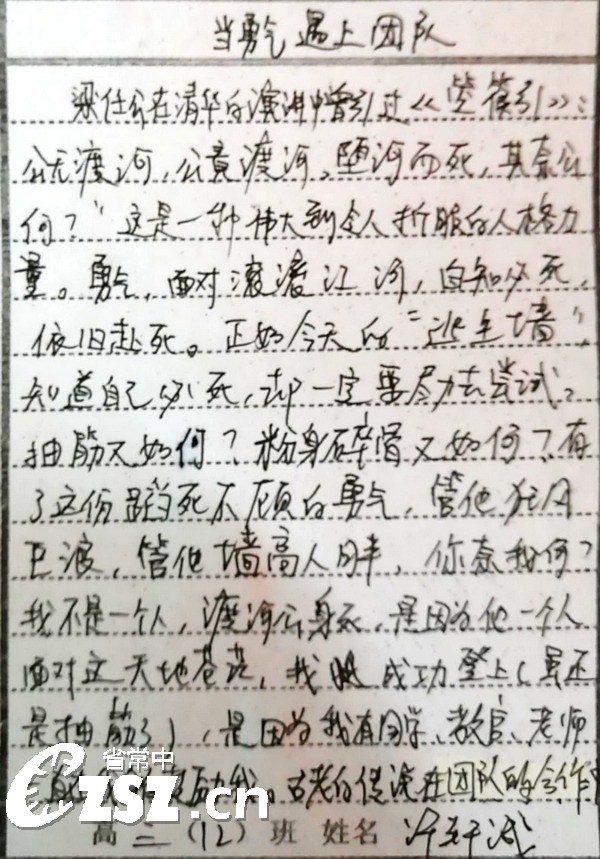 当勇气遇上团队
梁任公在清华的演讲中曾引过《箜篌引》:
公无渡河,公竟渡河,堕河而死,其奈公
何?"这是一种伟大到令人折服的人格力
量。勇气,面对滚滚江河,自知必死,
依旧赴死。正如今天的"逃生墙",
知道自己必死,却一定要尽力去尝试。
抽筋又如何?粉身碎骨又如何?有
了这份 死不顾的勇气,管他狂风
巨浪,管他墙高人胖,你奈我何?
我不是一个人,渡河公身死,是因为他一个人
面对这天地苍茫,我 成功登上(虽还
是抽筋了),是因为我有同学、教官、老师
我。古老的 在团队的合作
高二(12)班 姓名
省常中
CZSZ.cn